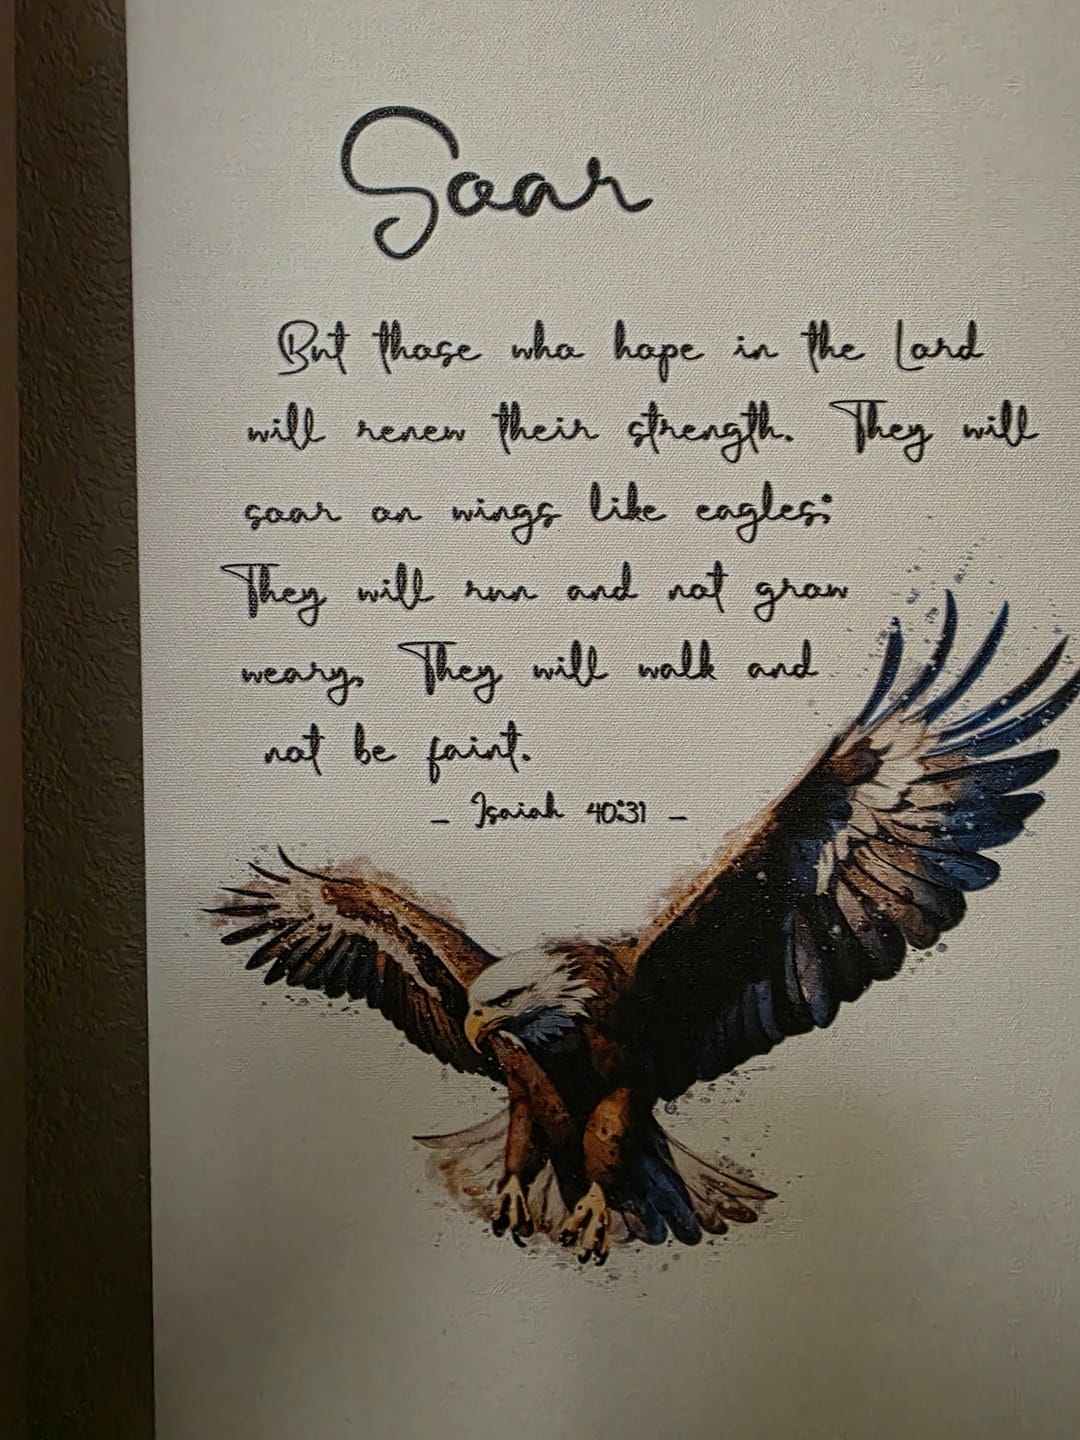 Soar
But those who hope in the Lord
will renew their strength. They will
soar on wings like eagles;
They will run and not grow
weary, They will walk and
not be faint.
- Isaiah 40:31 -